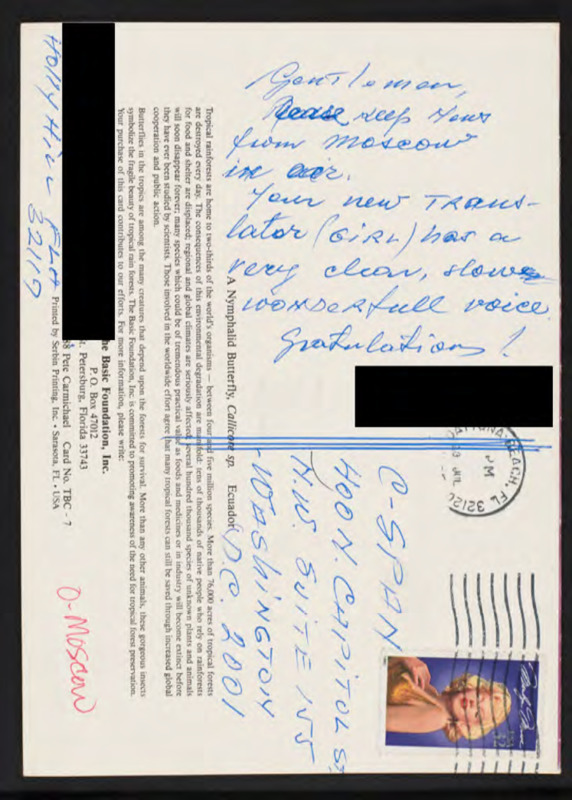 Gentlemen,
Please keep
from Moscow
in air.
Your new TRANS-
lator (GIRL) has a
very clear, slow
wonderfull voice.
Gratulations!
BEACH, FL 3212
PM
JUL
C-SPAN
400 N. CAPITOL ST
N.W. SUITE 155
WASHINGTON
DC 2001
32
A Nymphalid Butterfly, Callicore sp. Ecuador
Tropical rainforests are home to two-thirds of the world's organisms - between four and five million species. More than 76,000 acres of tropical forests
are destroyed every day. The consequences of this environmental degradation are manifold: tens of thousands of native people who rely on rainforests
for food and shelter are displaced; regional and global climates are seriously affected; several hundred thousand species of unknown plants and animals
will soon disappear forever; many species which could be of tremendous practical value as foods and medicines or in industry will become extinct before
they have ever been studied by scientists. Those involved in the worldwide effort agree that many tropical forests can still be saved through increased global
cooperation and public action.
Butterflies in the tropics are among the many creatures that depend upon the forests for survival. More than any other animals, these gorgeous insects
symbolize the fragile beauty of tropical rain forests. The Basic Foundation, Inc. is committed to promoting awareness of the need for tropical forest preservation.
Your purchase of this card contributes to our efforts. For more information, please write:
he Basic Foundation, Inc.
P.O. Box 47012
t. Petersburg, Florida 33743
88 Pete Carmichael Card No. TBC - 7
Printed by Serbin Printing, Inc. • Sarasota, FL • USA
Holly Hill
32119
O-Moscow